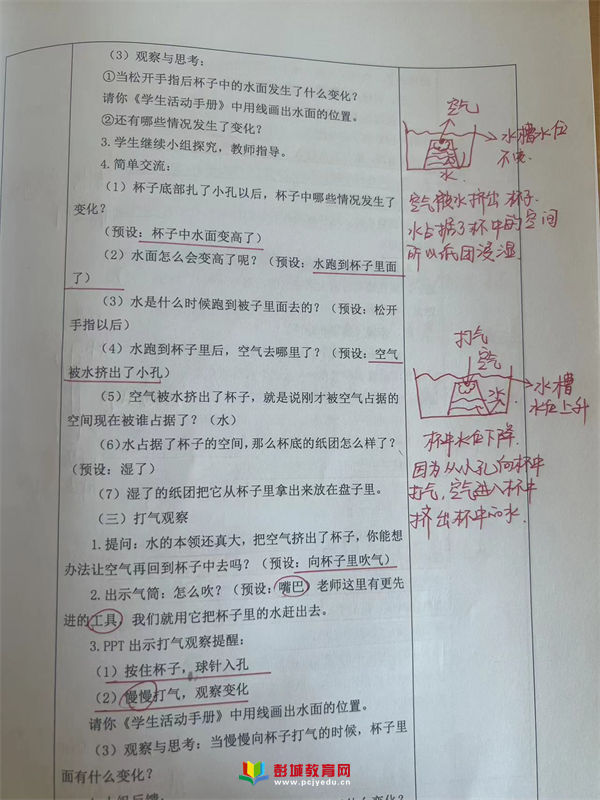 （3）观察与思考：
①当松开手指后杯子中的水面发生了什么变化？
请你《学生活动手册》中用线画出水面的位置。
②还有哪些情况发生了变化？
3.学生继续小组探究，教师指导。
4.简单交流：
（1）杯子底部扎了小孔以后，杯子中哪些情况发生了
变化？
（预设：杯子中水面变高了）
（2）水面怎么会变高了呢？（预设：水跑到杯子里面
了）
（3）水是什么时候跑到被子里面去的？（预设：松开
手指以后）
（4）水跑到杯子里后，空气去哪里了？（预设：空气
被水挤出了小孔）
（5）空气被水挤出了杯子，就是说刚才被空气占据的
空间现在被谁占据了？（水）
（6）水占据了杯子的空间，那么杯底的纸团怎么样了？
（预设：湿了）
（7）湿了的纸团把它从杯子里拿出来放在盘子里。
（三）打气观察
1.提问：水的本领还真大，把空气挤出了杯子，你能想
办法让空气再回到杯子中去吗？（预设：向杯子里吹气）
2.出示气筒：怎么吹？（预设：嘴巴）老师这里有更先
进的工具，我们就用它把杯子里的水赶出去。
3.PPT 出示打气观察提醒：
（1）按住杯子，球针入孔
（2）慢慢打气，观察变化
请你《学生活动手册》中用线画出水面的位置。
（3）观察与思考：当慢慢向杯子打气的时候，杯子里
面有什么变化？
空气
水槽水位
不变.
水.
空气被水挤出杯子.
水占据了杯中的空间
所以纸团浸湿.
打气
空气
水槽
水位上升
杯中水位下降.
因为从小孔向杯中
打气，空气进入杯中
挤出杯中的水.
彭城教育网
www.pcjyedu.cn